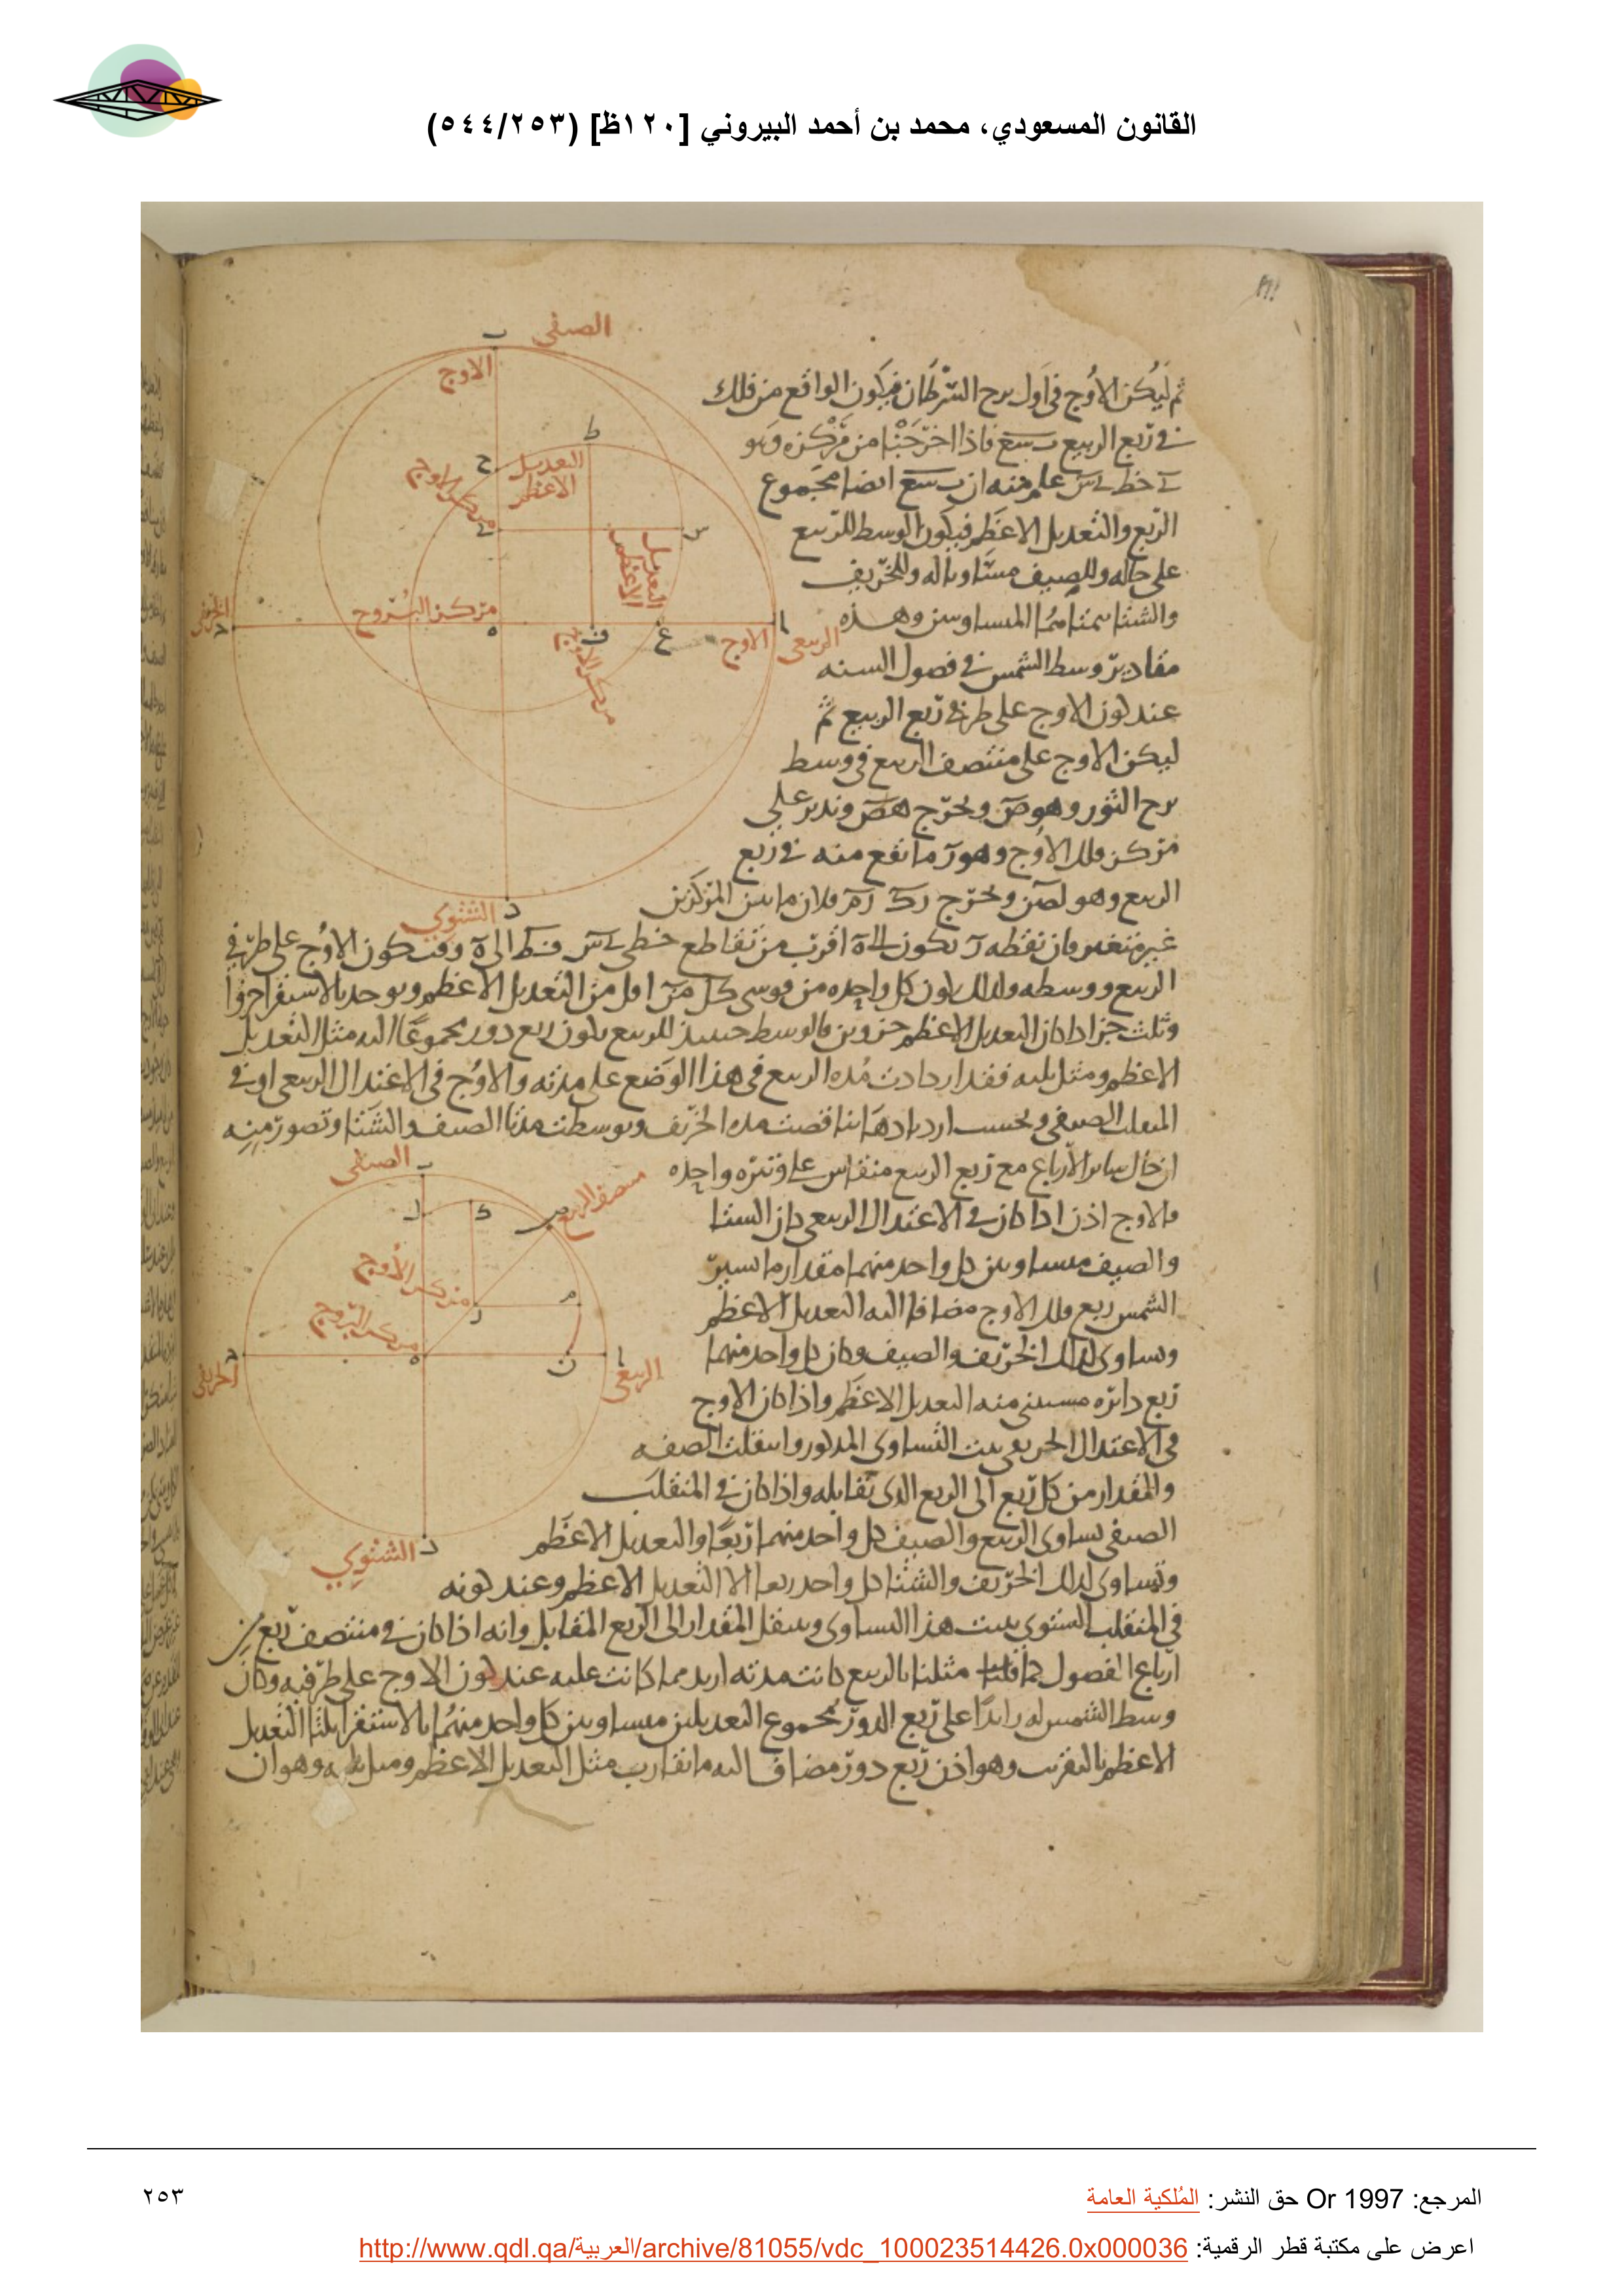 القانون المسعودي، محمد بن أحمد البيروني [١٢٠ظ] (٥٤٤/٢٥٣)
الصيفي
ب
الاوج
ثم ليكن الاوج في اول برج السرطان فيكون الواقع من فلك
في ربع الربيع ب س ع فاذا اخرجنا من مركزه وهو
ى خط ى س علم منه ان ب س ع ايضا مجموع
الربع والتعديل الاعظم فيكون الوسط للربيع
على حاله وللصيف مساويا له وللخريف
والشتا المتساويين وهذه
مقادير وسط الشمس في فصول السنه
عند كون الاوج على طرفي ربع الربيع ثم
ليكن الاوج على منتصف الربيع في وسط
برج الثور وهو ص ونخرج ه ص وندير على
مركز فلك الاوج وهو ر ما يقع منه في ربع
الربيع وهو ل ص ن ونخرج ر ك ر م فلان ما بين المركزين
غير متغير فان نقطه ر تكون الى ه اقرب من تقاطع خطى ى س ف ط الى ه وقت كون الاوج على طرفي
الربيع ووسطه ولذلك يكون كل واحده من قوسي ك ل م ن اقل من التعديل الاعظم ويوجد بالاستقرا جزوا
وثلث جز اذا كان التعديل الاعظم جزوين فالوسط حينيذ للربيع يكون ربع دور مجموعا اليه مثل التعديل
الاعظم ومثل ثلثه فقد ازدادت مده الربيع في هذا الوضع على مدته والاوج في الاعتدال الربيعي او في
المنقلب الصيفي وبحسب ازديادها تناقصت مده الخريف وتوسطت مدتا الصيف والشتا وتصور منه
ان حال ساير الارباع مع ربع الربيع متقايس على وتيره واحده
فالاوج اذن اذا كان في الاعتدال الربيعي كان الشتا
والصيف متساويين كل واحد منهما مقدار ما تسير
الشمس ربع فلك الاوج مضافا اليه التعديل الاعظم
وتساوى كذلك الخريف والصيف وكان كل واحد منهما
ربع دايره مستثنى منه التعديل الاعظم واذا كان الاوج
في الاعتدال الخريفي ثبت التساوي المذكور وانتقلت الصفه
والمقدار من كل ربع الى الربع الذي يقابله واذا كان في المنقلب
الصيفي تساوى الربيع والصيف كل واحد منهما ربعا والتعديل الاعظم
وتساوى كذلك الخريف والشتا كل واحد ربعا الا التعديل الاعظم وعند كونه
في المنقلب الشتوي ثبت هذا التساوي وينتقل المقدار الى الربع المقابل وانه اذا كان في منتصف ربع من
ارباع الفصول كما مثلنا بالربيع كانت مدته ازيد مما كانت عليه عند كون الاوج على طرفيه وكان
وسط الشمس له زايدا على ربع الدور بمجموع التعديلين متساويين كل واحد منهما بالاستقرا ثلثا التعديل
الاعظم بالتقريب وهو اذن ربع دور مضاف اليه ما يقارب مثل التعديل الاعظم ومثل ثلثه وهو ان
ط
ح
التعديل
الاعظم
مركز الاوج
ى
س
التعديل
الاعظم
الخريفي
ج
مركز البروج
ه
ف
مركز الاوج
ع
الاوج
ا
الربيعي
د
الشتوي
الصيفي
ب
ل
ك
ص
منتصف الربيع
مركز الاوج
ر
م
مركز البروج
ه
ج
الخريفي
ن
ا
الربيعي
د
الشتوي
المرجع: Or 1997 حق النشر: المُلكية العامة
٢٥٣
اعرض على مكتبة قطر الرقمية: http://www.qdl.qa/العربية/archive/81055/vdc_100023514426.0x000036